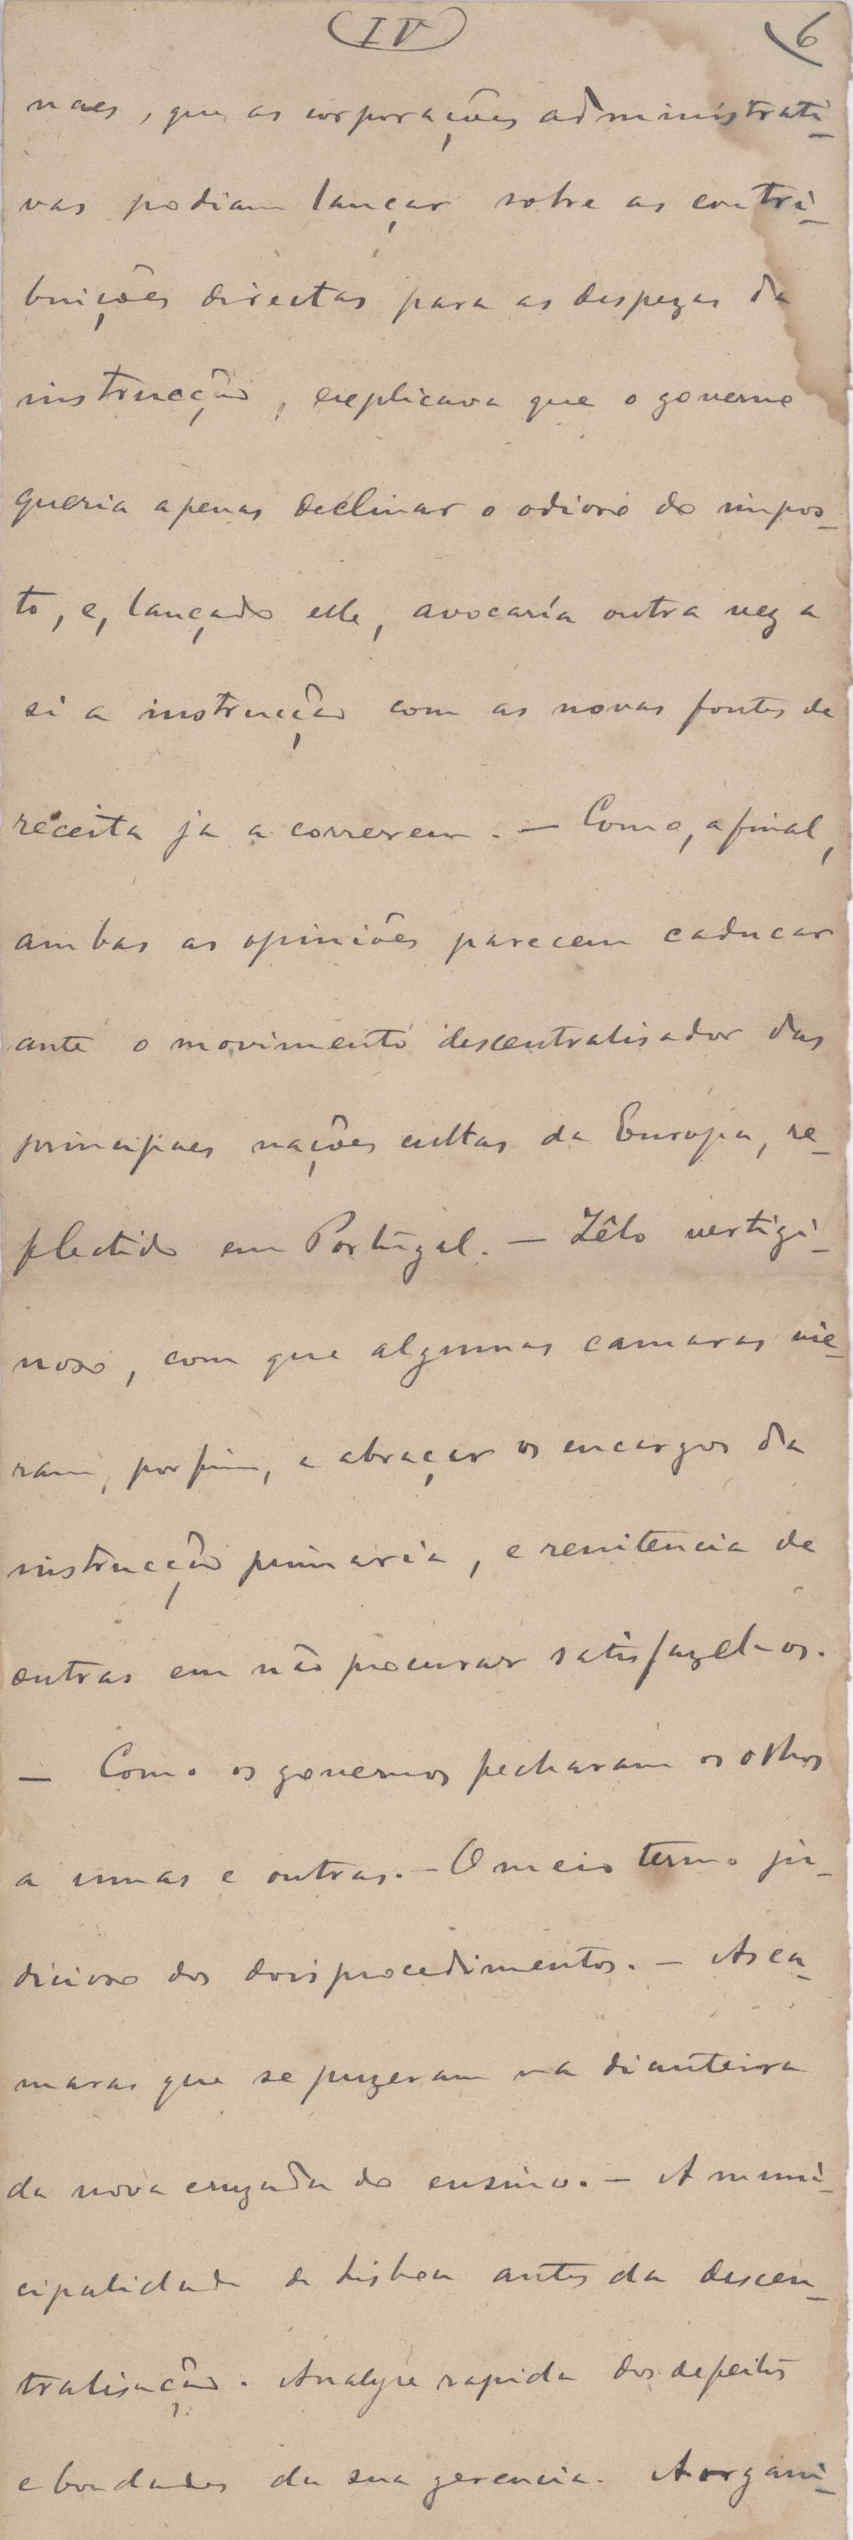 IV
6
naes, que as corporações administrati-
vas podiam lançar sobre as contri-
buições directas para as despezas da
instrucção, explicava que o governo
queria apenas declinar o odioso do impos-
to, e, lançado elle, avocaria outra vez a
si a instrucção com as novas fontes de
receita ja a correrem. — Como, afinal,
ambas as opiniões parecem caducar
ante o movimento descentralisador das
principaes nações cultas da Europa, re-
flectido em Portugal. — Zêlo vertigi-
noso, com que algumas camaras vie-
ram, por fim, a abraçar os encargos da
instrucção primaria, e renitencia de
outras em não procurar satisfazel-os.
— Como os governos fecharam os olhos
a umas e outras. — O meio termo ju-
dicioso dos dois procedimentos. — As ca-
maras que se puzeram na dianteira
da nova cruzada do ensino. — A muni-
cipalidade de Lisboa antes da descen-
tralisação. Analyse rapida dos defeitos
e bondades da sua gerencia. A organi-